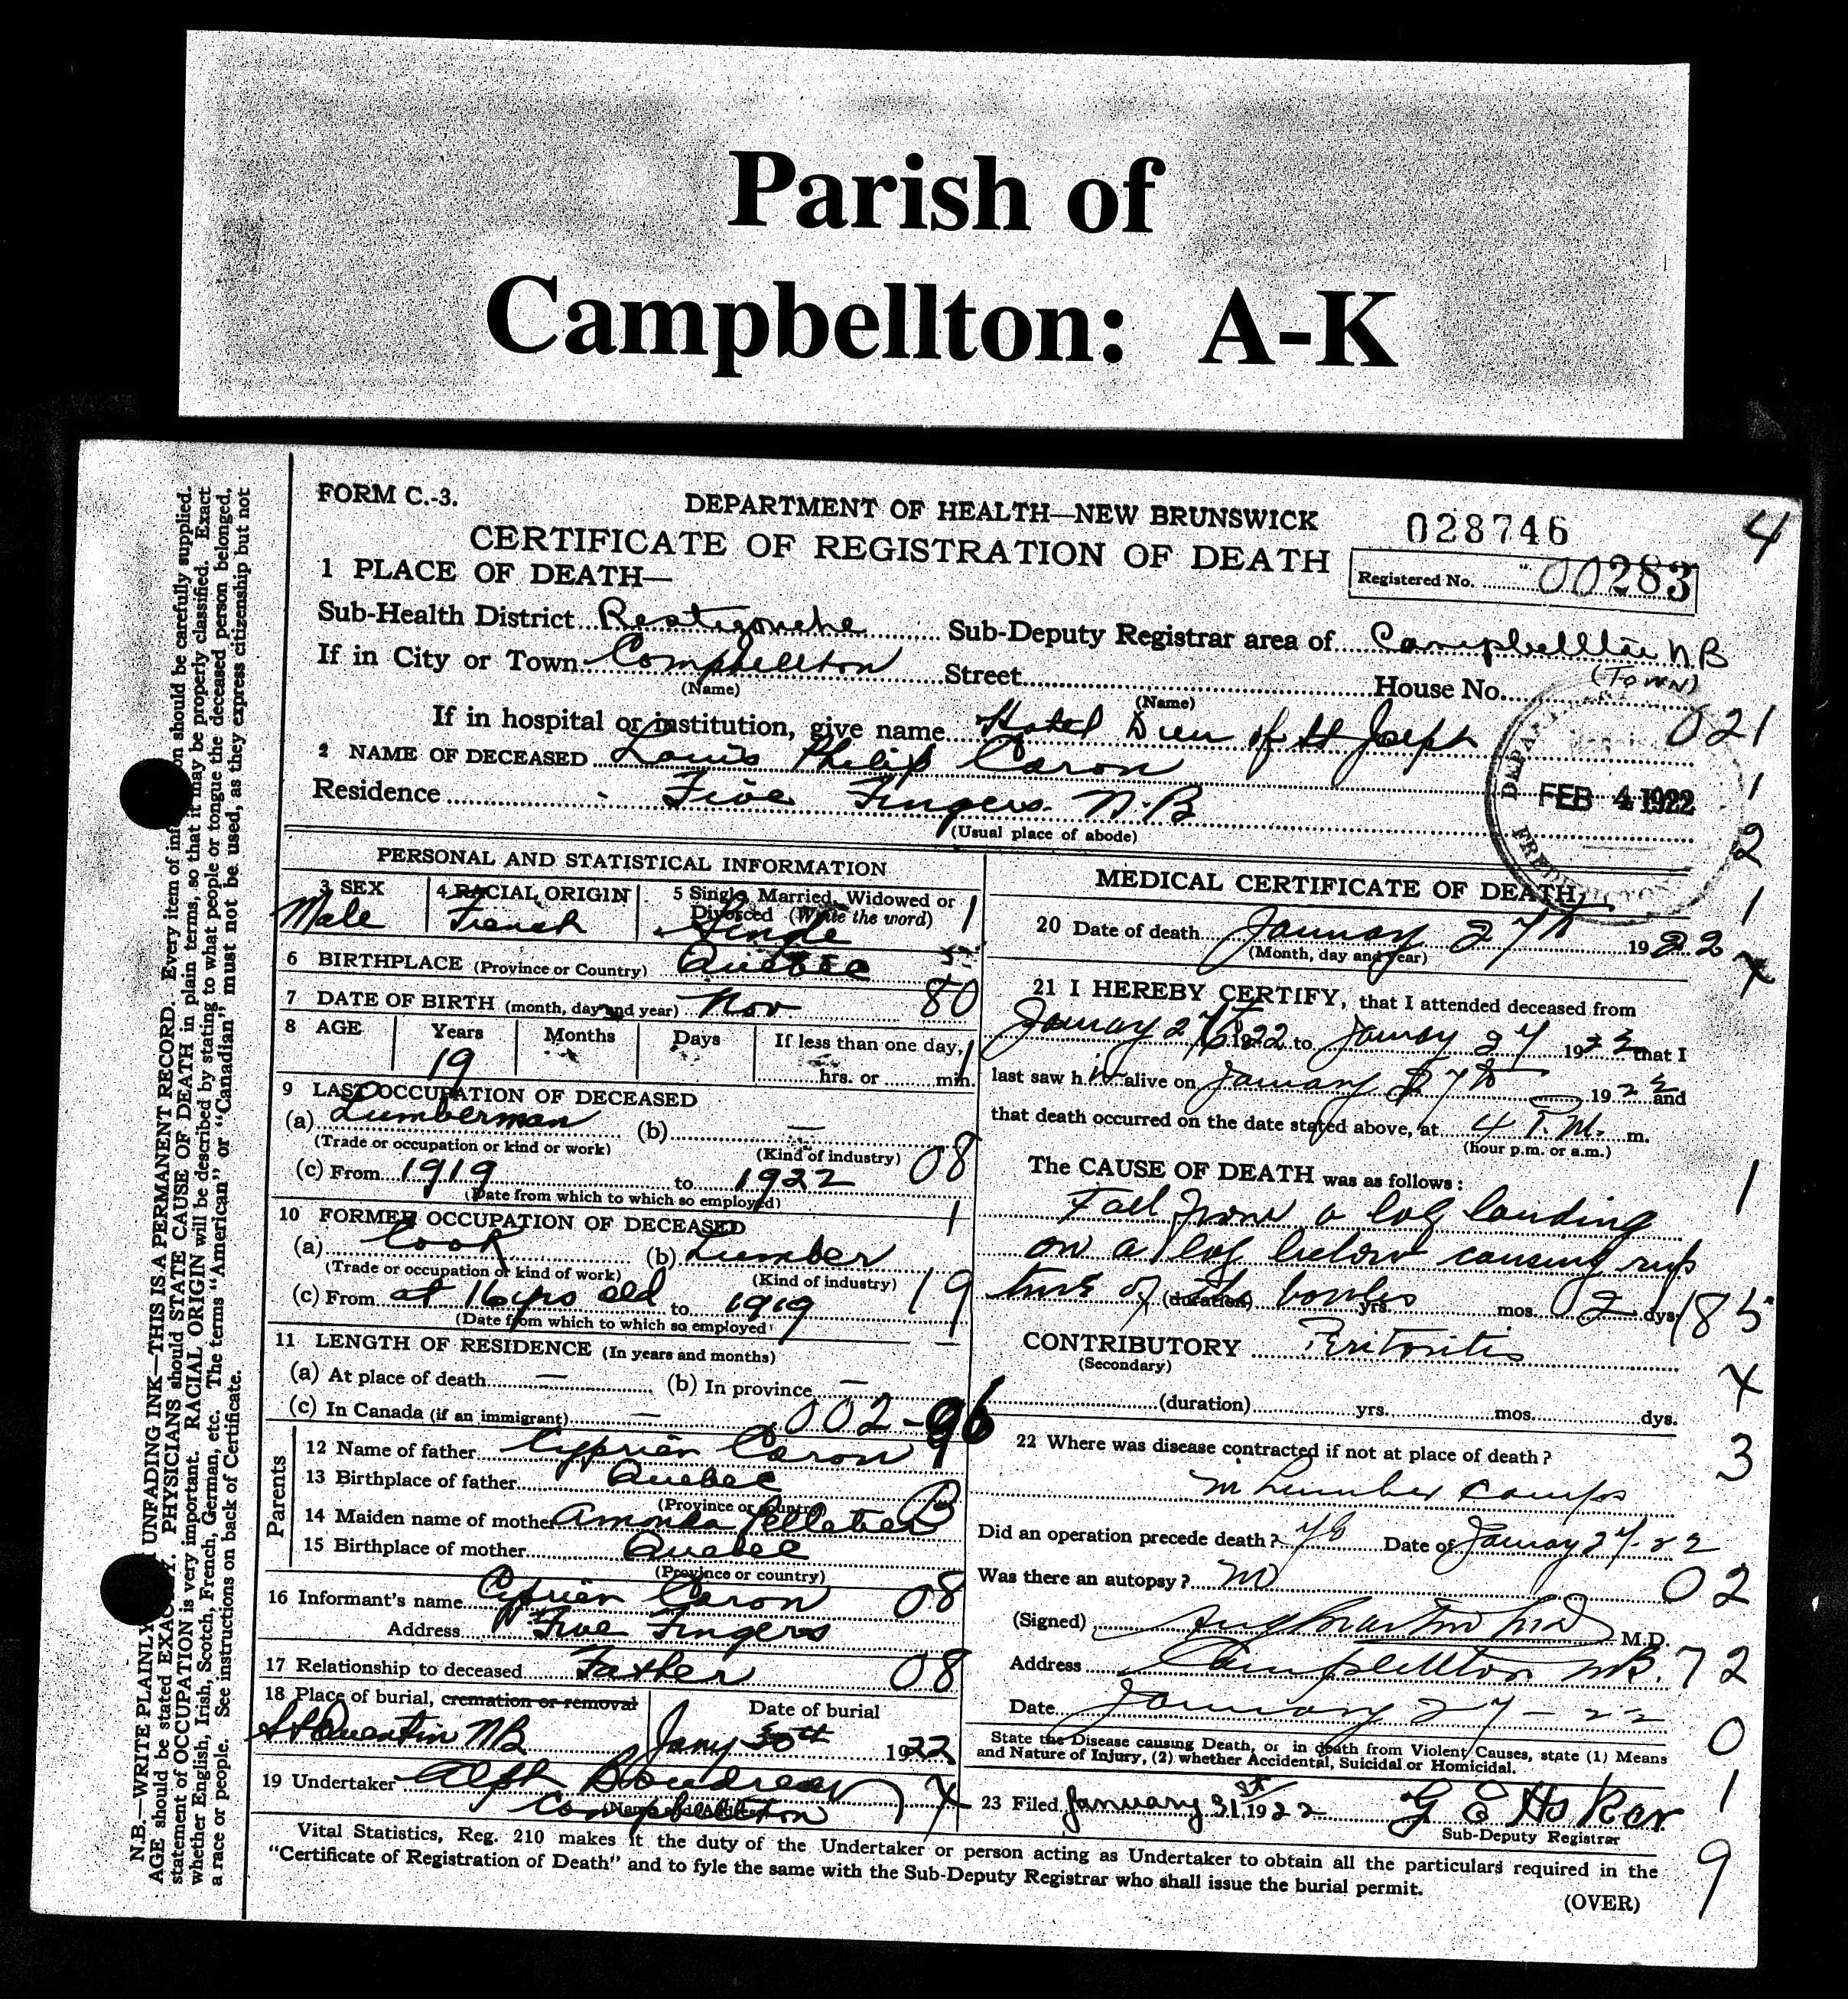 Parish of
Campbellton: A-K
FORM C.-3.
DEPARTMENT OF HEALTH—NEW BRUNSWICK
028746
4
CERTIFICATE OF REGISTRATION OF DEATH
Registered No. 00283
1 PLACE OF DEATH—
Sub-Health District Restigouche Sub-Deputy Registrar area of Campbellton N B
(Town)
If in City or Town Campbellton Street House No.
(Name) (Name)
If in hospital or institution, give name Hotel Dieu of St Joseph 021
2 NAME OF DECEASED Louis Philip Caron
Residence Five Fingers N.B
(Usual place of abode)
FEB 4 1922
FREDERICTON
1
2
1
X
PERSONAL AND STATISTICAL INFORMATION
3 SEX 4 RACIAL ORIGIN 5 Single, Married, Widowed or
Divorced (Write the word)
Male French Single 1
6 BIRTHPLACE (Province or Country) Quebec
7 DATE OF BIRTH (month, day and year) Nov 80
8 AGE Years Months Days If less than one day,
19 hrs. or min. 1
9 LAST OCCUPATION OF DECEASED
(a) Lumberman (b) —
(Trade or occupation or kind or work) (Kind of industry) 08
(c) From 1919 to 1922
(Date from which to which so employed)
10 FORMER OCCUPATION OF DECEASED 1
(a) Cook (b) Lumber
(Trade or occupation or kind of work) (Kind of industry)
(c) From at 16 yrs old to 1919 19
(Date from which to which so employed)
11 LENGTH OF RESIDENCE (In years and months) —
(a) At place of death — (b) In province —
(c) In Canada (if an immigrant) — 002-96
Parents
12 Name of father Cyprien Caron 9
13 Birthplace of father Quebec
(Province or country)
14 Maiden name of mother Amanda Pelletier B
15 Birthplace of mother Quebec
(Province or country)
16 Informant's name Cyprien Caron 08
Address Five Fingers
17 Relationship to deceased Father 08
18 Place of burial, cremation or removal Date of burial
St Quentin NB Jany 30th 1922
19 Undertaker Alph Boudreau 7 X
(Name and Address)
Campbellton
MEDICAL CERTIFICATE OF DEATH
20 Date of death January 27th 1922
(Month, day and year)
21 I HEREBY CERTIFY, that I attended deceased from
January 27th 1922 to January 27 1922 that I
last saw him alive on January 27th 1922 and
that death occurred on the date stated above, at 4 P.M. m.
(hour p.m. or a.m.)
The CAUSE OF DEATH was as follows: 1
Fall from a log landing
on a log below causing rup
ture of the bowles
(duration) yrs. mos. 02 dys. 185
CONTRIBUTORY Peritonitis
(Secondary) X
(duration) yrs. mos. dys.
22 Where was disease contracted if not at place of death? 3
In Lumber Camps
Did an operation precede death? yes Date of January 27-22
Was there an autopsy? no 02
(Signed) M.D.
Address Campbellton NB. 72
Date January 27 - 22
0
State the Disease causing Death, or in death from Violent Causes, state (1) Means
and Nature of Injury, (2) whether Accidental, Suicidal or Homicidal.
23 Filed January 31st 1922 1
Sub-Deputy Registrar
9
Vital Statistics, Reg. 210 makes it the duty of the Undertaker or person acting as Undertaker to obtain all the particulars required in the
"Certificate of Registration of Death" and to fyle the same with the Sub-Deputy Registrar who shall issue the burial permit.
(OVER)
N.B.—WRITE PLAINLY UNFADING INK—THIS IS A PERMANENT RECORD. Every item of should be carefully supplied.
AGE should be stated PHYSICIANS should STATE CAUSE OF DEATH in plain terms, so that it may be properly classified. Exact
statement of OCCUPATION is very important. RACIAL ORIGIN will be described by stating to what people or tongue the deceased person belonged,
whether English, Irish, Scotch, French, German, etc. The terms "American" or "Canadian" must not be used, as they express citizenship but not
a race or people. See instructions on back of Certificate.